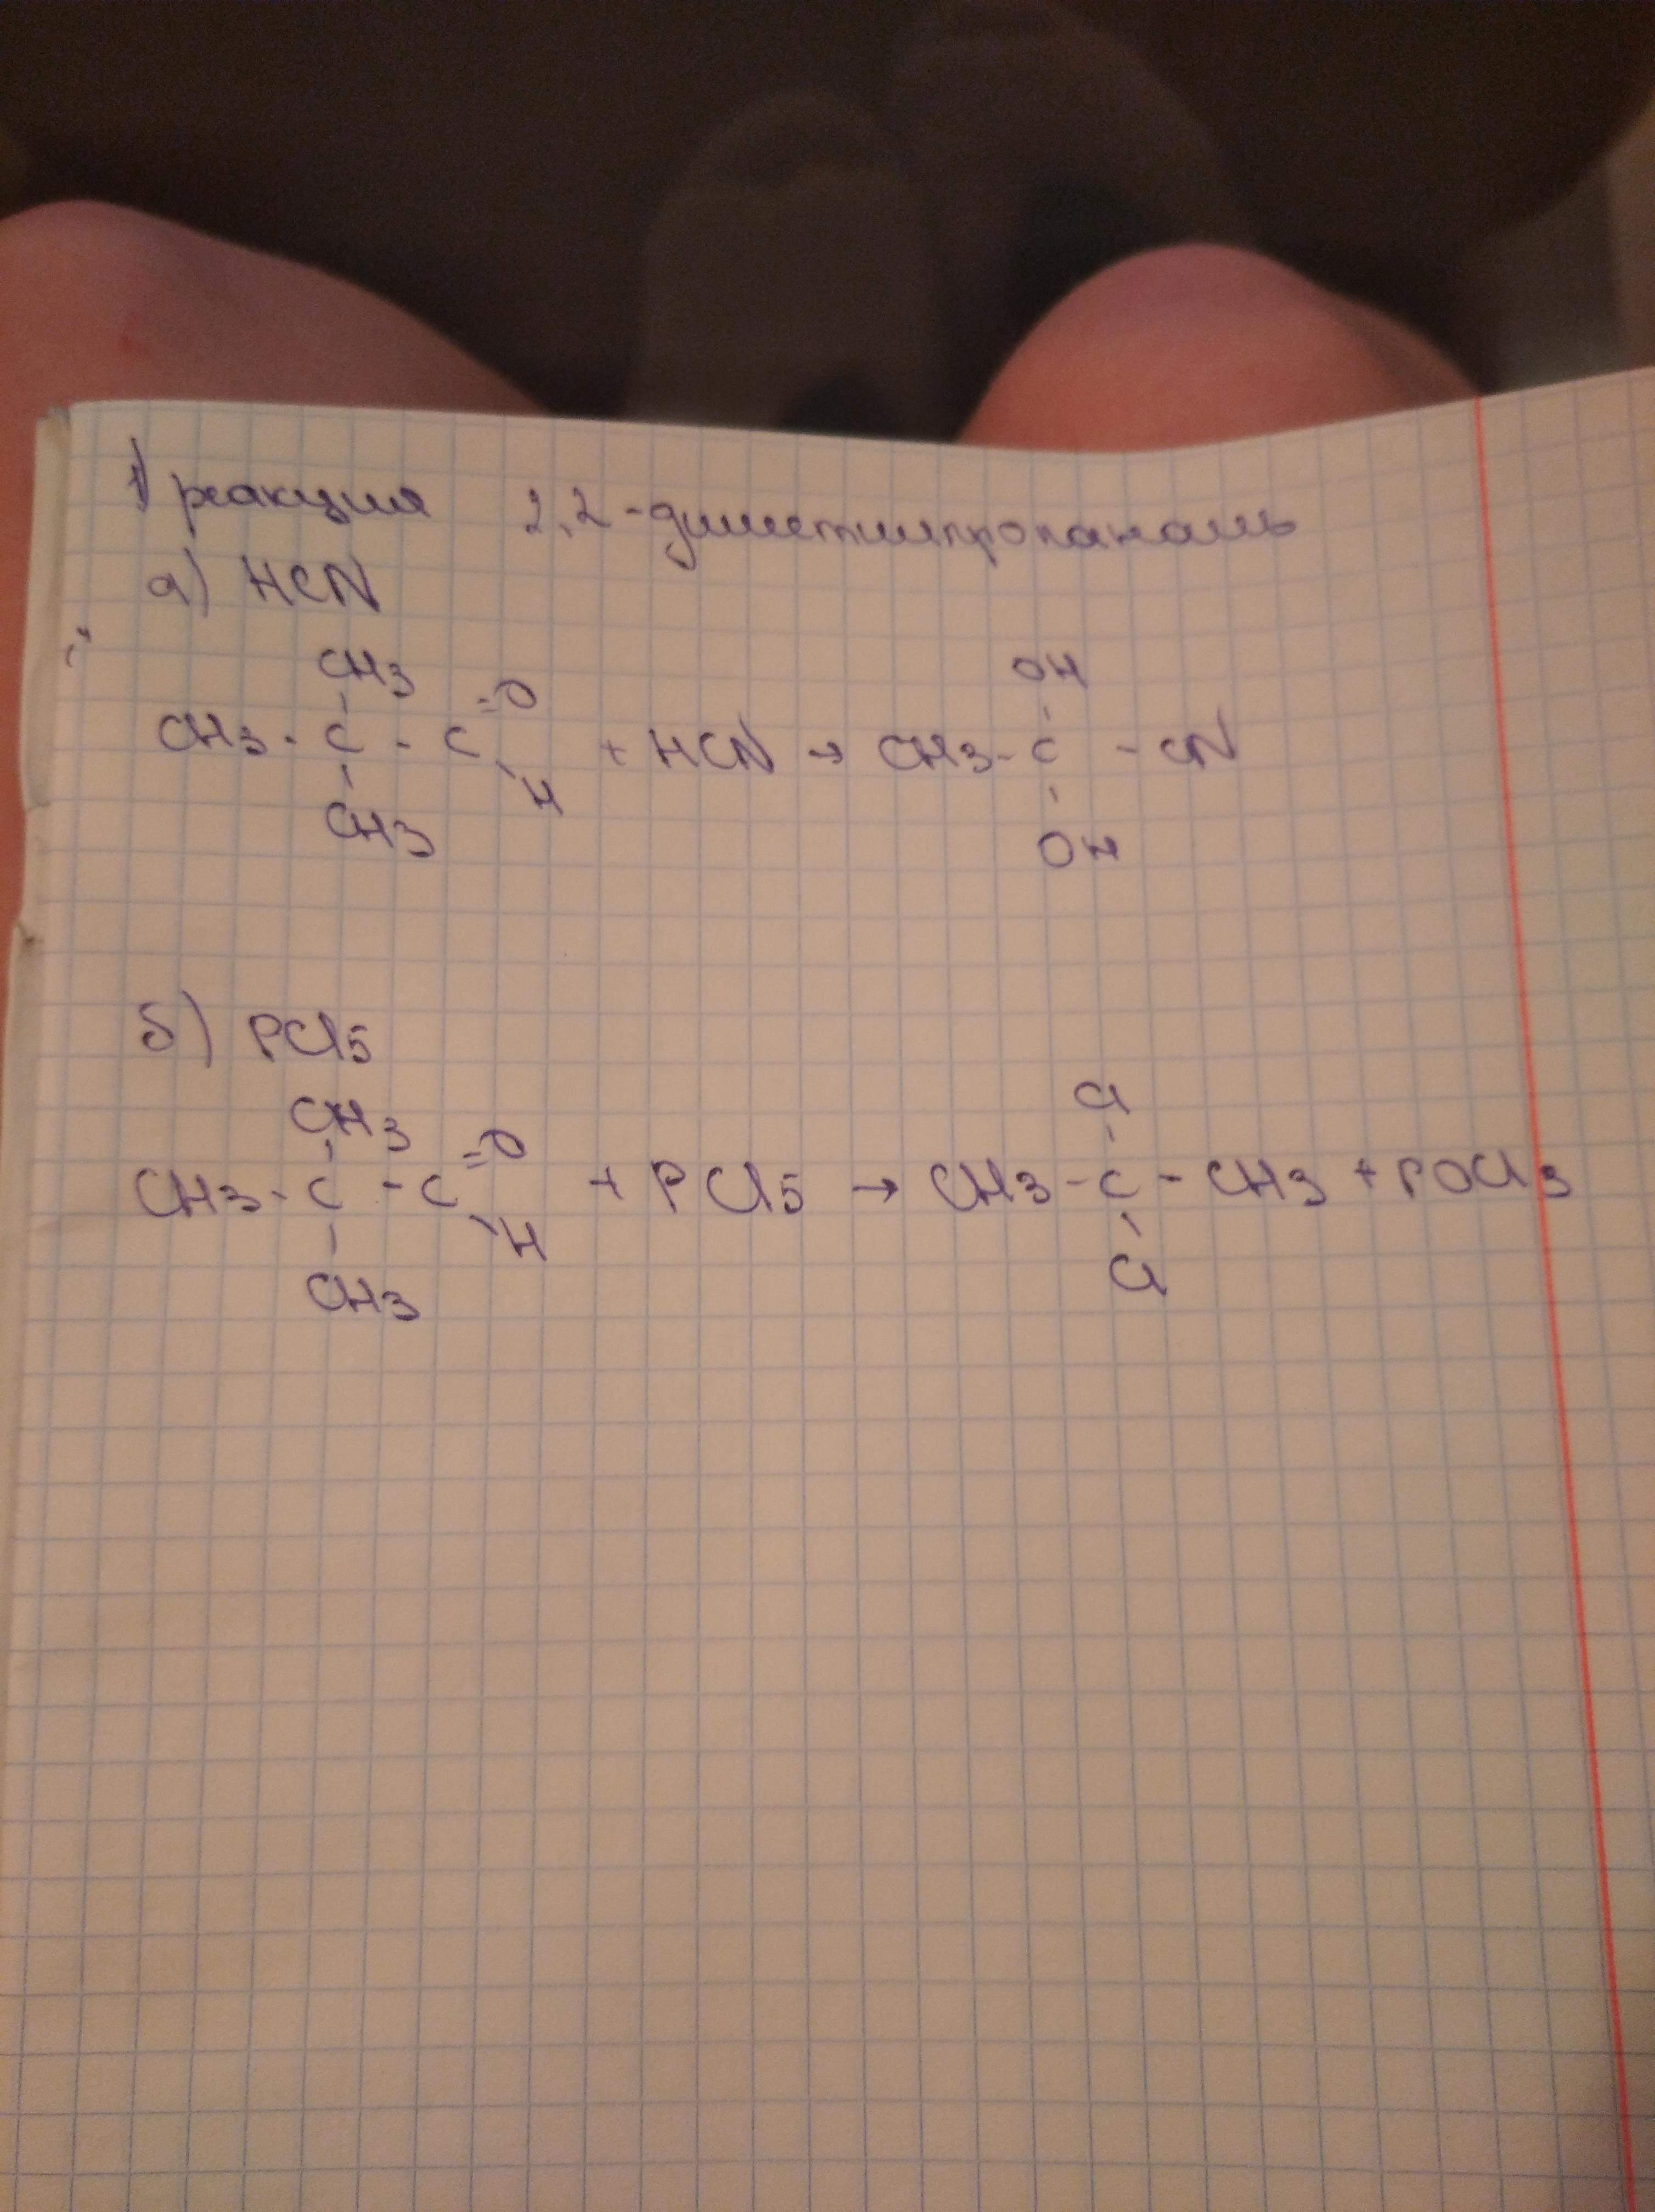 1) реакция 2,2-диметилпропаналь
а) HCN
CH3 OH
=O
CH3 - C - C + HCN → CH3 - C - CN
H
CH3 OH
б) PCl5
CH3 Cl
=O
CH3 - C - C + PCl5 → CH3 - C - CH3 + POCl3
H
CH3 Cl